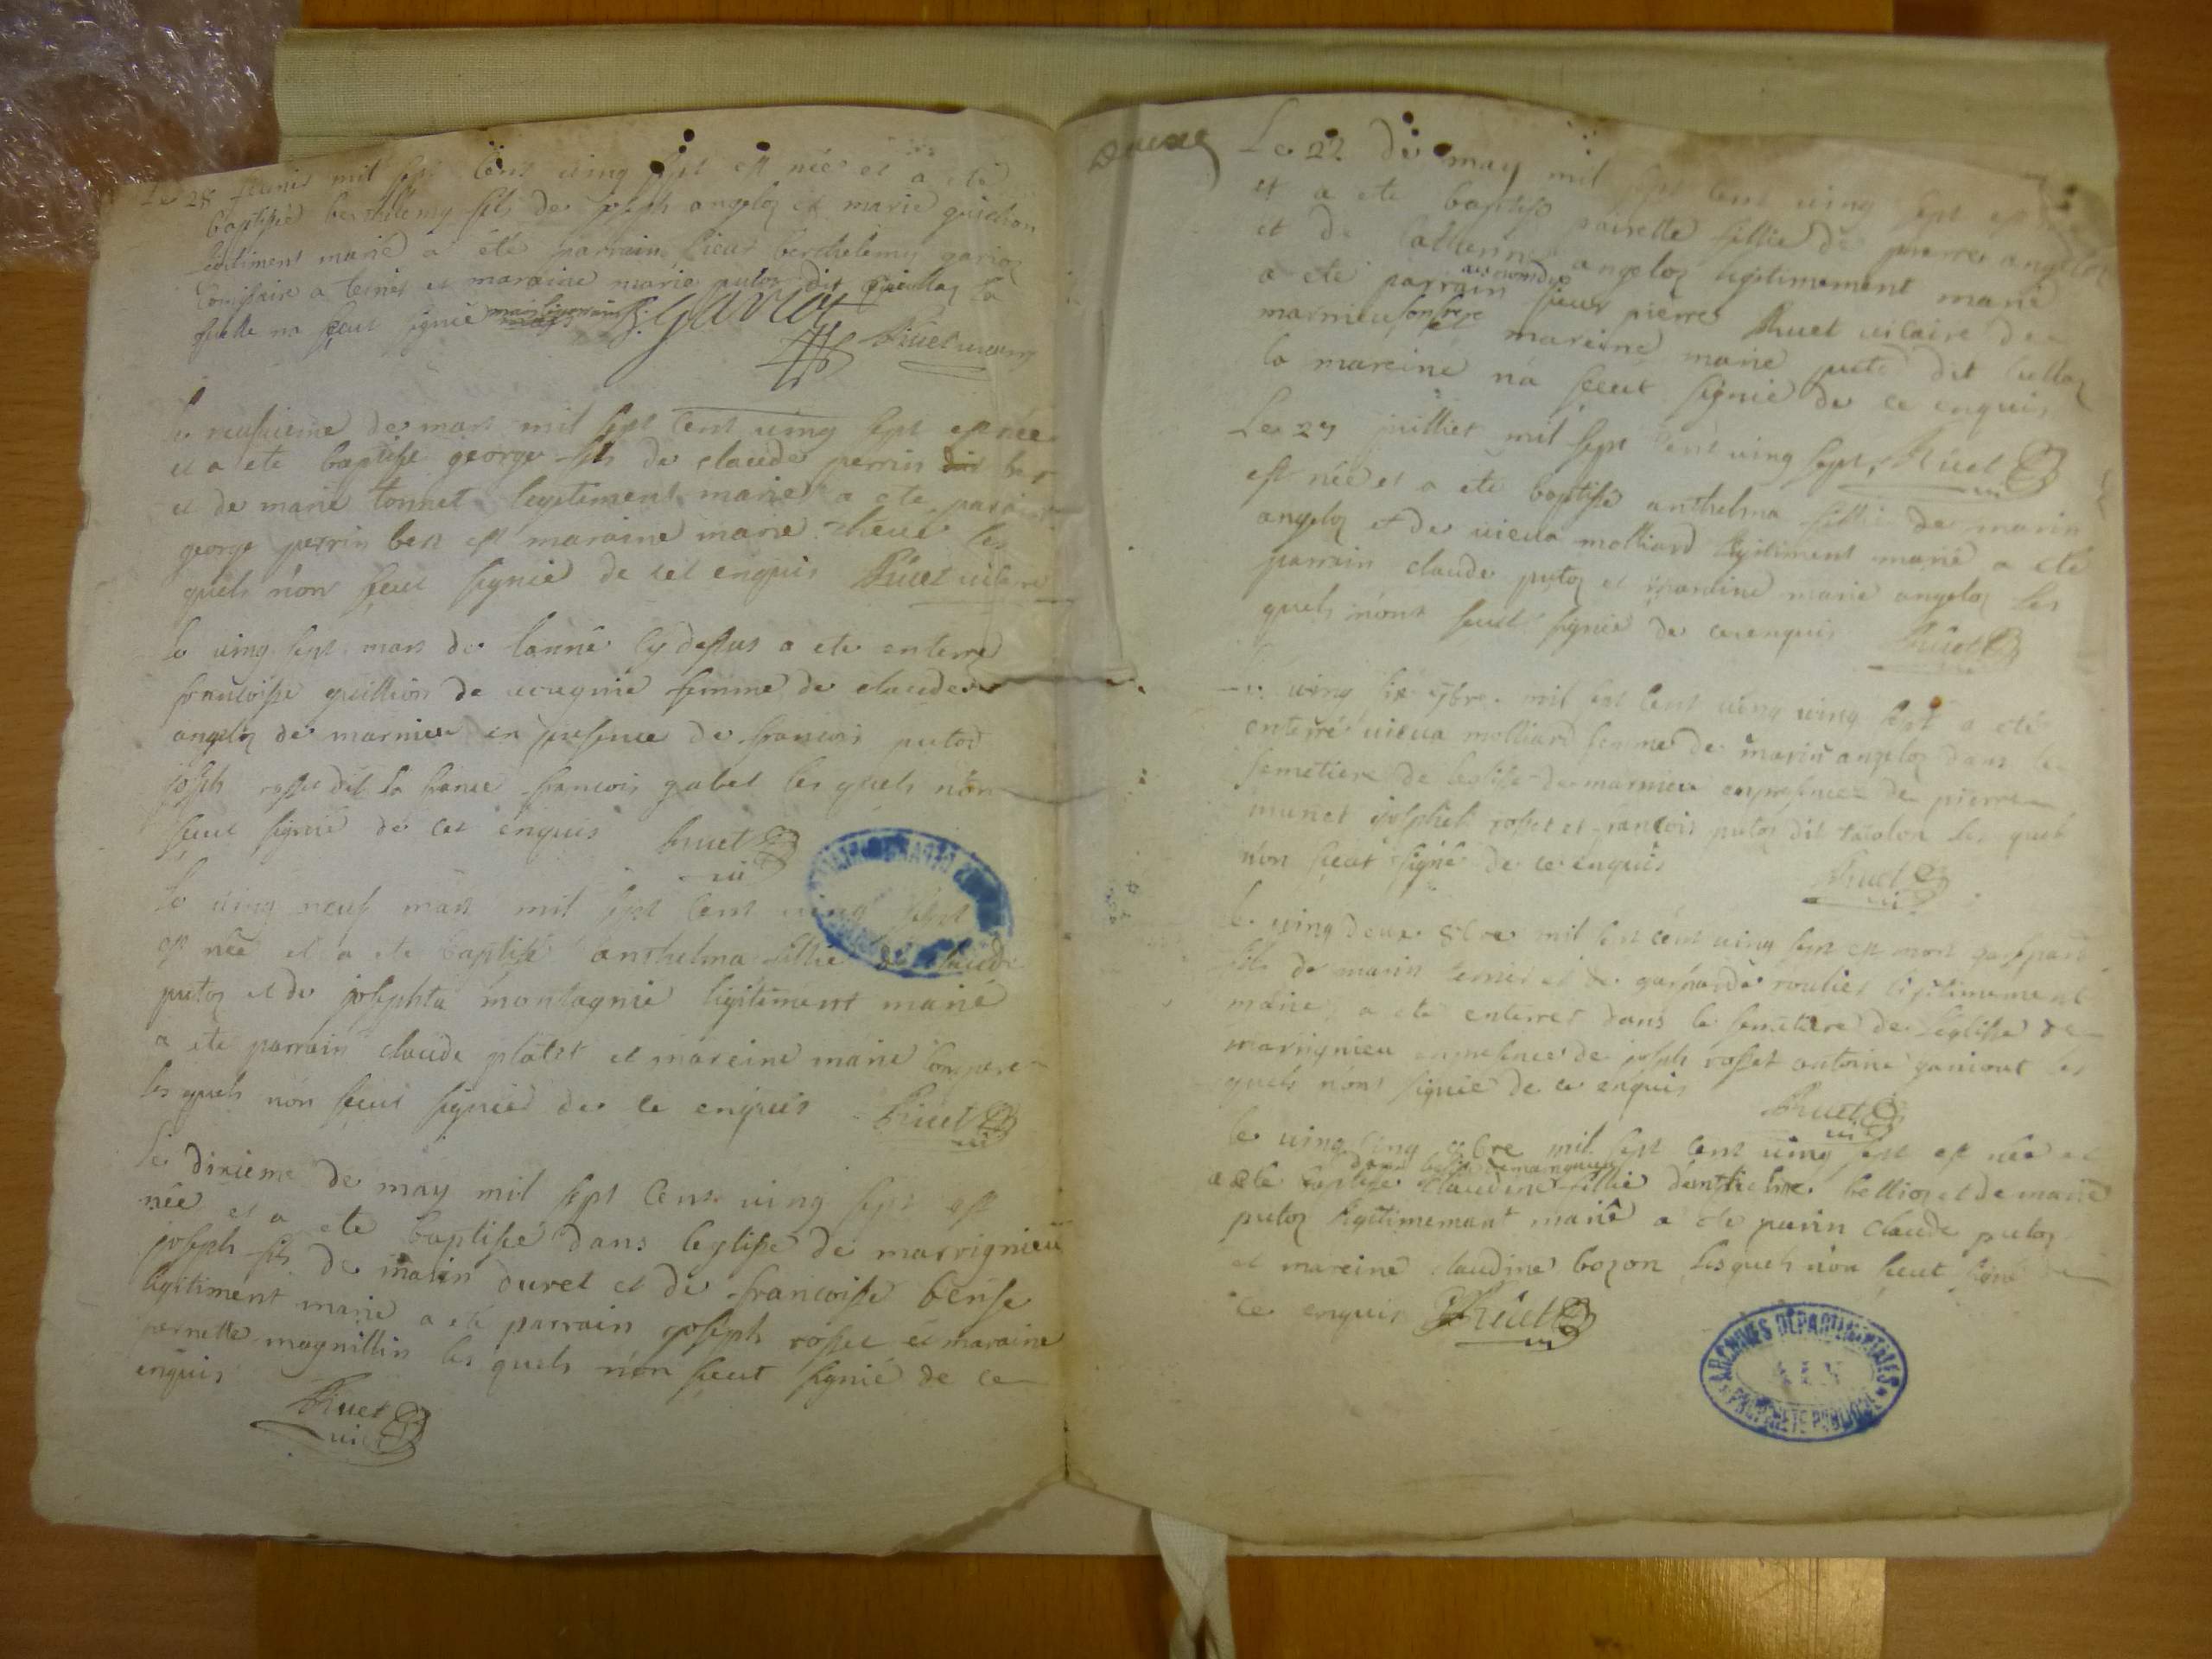 Le 28 feurier mil sept cens ving sept est née et a ete
baptisse berthelemy fils de joseph angeloz et marie guichon
legitiment marié a été parrain sieur berthelemy garioz
a et maraine marie putoz dit la
quelle na sceut signié B: Gariot
Ruet vicaire
le neufuieme de mars mil sept cent ving sept est née
et a ete baptisse george fils de claude perrin bes
et de marie tonnet legitiment maries a ete parain
george perrin bes et maraine marie les
quels non sceut signié de cet enquis Ruet vicaire
le ving sept mars de lanné cy dessus a ete enterré
francoisse guillion de femme de claude
angeloz de marnieu en presence de francois putod
joseph rosset dit la france francois gabet les quels non
sceut signié de cet enquis Ruet
vic
le ving neuf mars mil sept cent ving sept
est née et a ete baptisé anthelma fillie de claude
putoz et de josephta montagnié ligitiment marié
a ete parrain claude platet et mareine marie compere
les quels non sceut signied de ce enquis Ruet
vic
le dixieme de may mil sept cens ving sept est
née et a ete baptissé dans leglisse de marrignieu
joseph fils de marin duret et de francoisse bense
ligitiment marié a été parrain joseph rosset et maraine
pernette magnillin les quels non sceut signié de ce
enquis
Ruet
vic
Le 22 de may mil sept cent ving sept est née
et a ete baptisse pairette fillie de pierre angeloz
et de catherine angeloz legitimement marié
au nom de
a ete parrain sieur pierre Ruet vicaire de
marnieu son frere et mareine marie puto dit
la mareine na sceut signié de ce enquis
Ruet
vic
Le 27 juilliet mil sept cent ving sept
est née et a ete baptisse anthelma fillie de marin
angeloz et de uieua molliard legitiment marié a ete
parrain claude putoz et mareine marie angeloz les
quels n'ont sceut signié de ce enquis Ruet
le ving six 7bre mil sept cent ving ving sept a eté
enterré uieua molliard femme de marin angeloz dans le
semetiere de leglisse de marnieu en presence de pierre
munet josepht rosset et francois putoz dit les quels
non sceut signé de ce enquis
Ruet
vic
le ving deux 8bre mil sept cent ving sept est mort gasspard
fils de marin et de gasparde roulier legitimement
marié a ete enterret dans le semetiere de leglisse de
marrignieu en presence de joseph rosset antoine ganiout les
quels n'ont signié de ce enquis
Ruet
vic
le ving bre mil sept cent ving sept est née et
dans leglise de marignieu
a ete baptisse claudine fillie danthelme bellioz et de marie
putoz legitimemant marié a ete parin claude putoz
et mareine claudine bozon lesquels non sceut signé de
ce enquis Ruet
vic
ARCHIVES DÉPARTEMENTALES
AIN
PROPRIÉTÉ PUBLIQUE